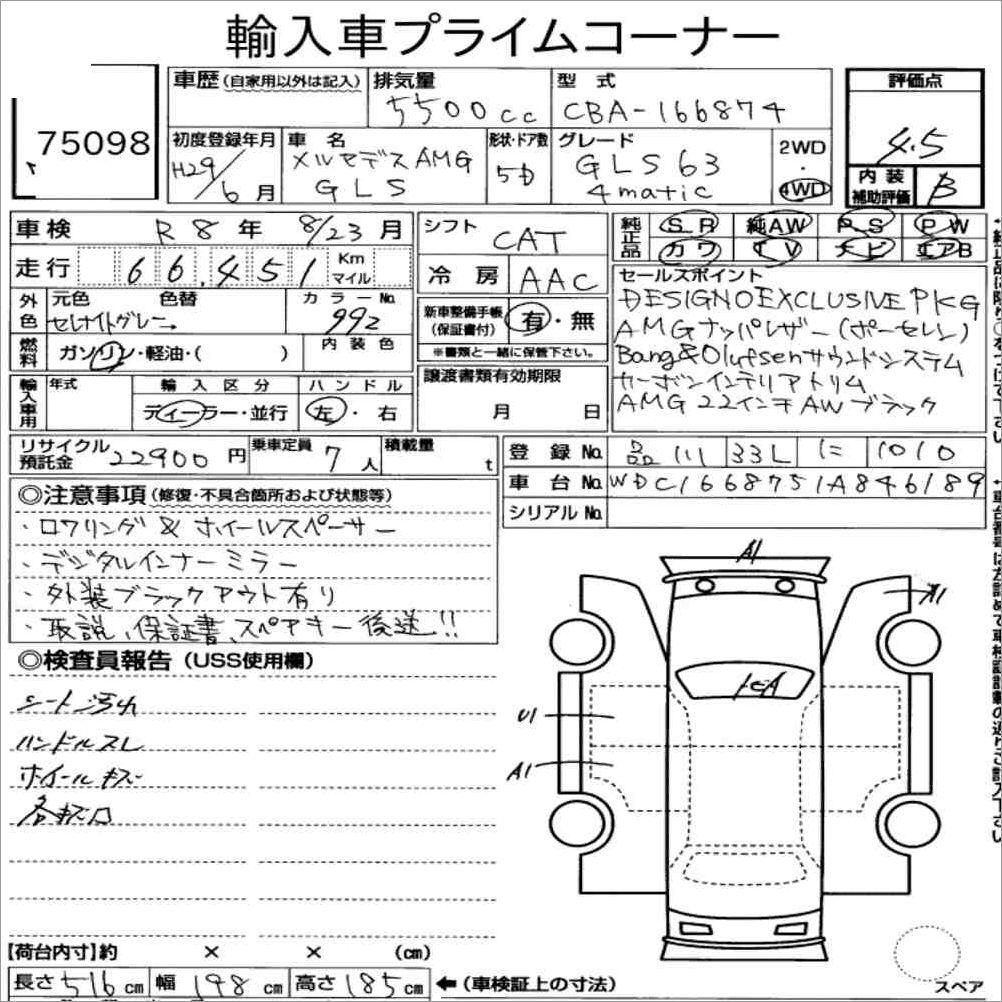 輸入車プライムコーナー
75098
車歴(自家用以外は記入) 排気量 5500cc 型式 CBA-166874 評価点 4.5
初度登録年月 H29/6月 車名 メルセデスAMG GLS 形状・ドア数 5D グレード GLS63 4matic 2WD・4WD 内装補助評価 B
車検 R8年 8/23月 シフト CAT 純正品 SR 純AW PS PW
走行 66,451 Km マイル 冷房 AAC カワ TV ナビ エアB
外色 元色 色替 セレナイトグレー カラーNo 992 新車整備手帳(保証書付) 有・無
燃料 ガソリン・軽油・( ) 内装色 ※書類と一緒に保管下さい。
セールスポイント
DESIGNOEXCLUSIVE PKG
AMGナッパレザー(ポーセレン)
Bang&Olufsenサウンドシステム
カーボンインテリアトリム
AMG22インチAWブラック
輸入車用 年式 輸入区分 ディーラー・並行 ハンドル 左・右 譲渡書類有効期限 月 日
リサイクル預託金 22900円 乗車定員 7人 積載量 t 登録No. 品川 33L に 1010
車台No. WDC1668751A846189
シリアルNo.
◎注意事項(修復・不具合箇所および状態等)
・ロワリング&ホイールスペーサー
・デジタルインナーミラー
・外装ブラックアウト有り
・取説、保証書、スペアキー後送!!
◎検査員報告(USS使用欄)
シート汚れ
ハンドルスレ
ホイールキズ
A1
A1
U1
A1
【荷台内寸】約 × × (cm)
長さ516cm 幅198cm 高さ185cm ←(車検証上の寸法)
スペア